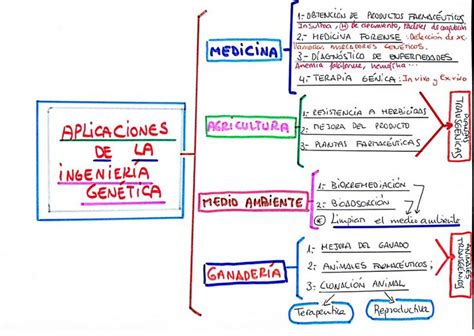 APLICACIONES
DE LA
INGENIERÍA
GENÉTICA
MEDICINA
1.- OBTENCIÓN DE PRODUCTOS FARMACÉUTICOS
Insulina, (H) de crecimiento, factores de coagulación
2.- MEDICINA FORENSE: Detección de
marcadores genéticos.
3.- DIAGNÓSTICO DE ENFERMEDADES
Anemia falciforme, hemofilia...
4.- TERAPIA GÉNICA: In vivo y Ex vivo
AGRICULTURA
1.- RESISTENCIA A HERBICIDAS
2.- MEJORA DEL PRODUCTO
3.- PLANTAS FARMACÉUTICAS
PLANTAS
TRANSGÉNICAS
MEDIO AMBIENTE
1.- BIORREMEDIACIÓN
2.- BIOADSORCIÓN
Limpian el medio ambiente
GANADERÍA
1.- MEJORA DEL GANADO
2.- ANIMALES FARMACÉUTICOS;
3.- CLONACIÓN ANIMAL
ANIMALES
TRANSGÉNICOS
Terapéutica
Reproductiva